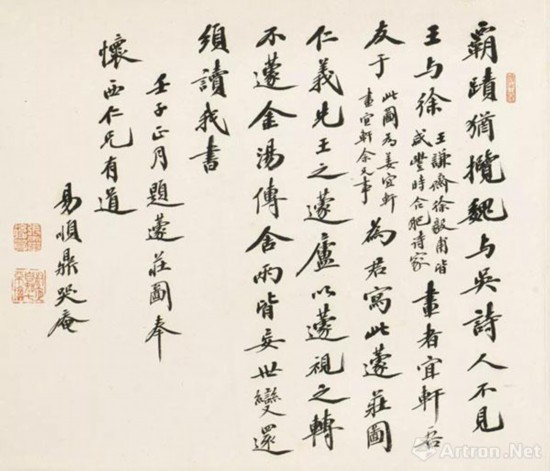 霸蹟猶攬魏與吳詩人不見
王与徐王謙齋徐毅甫皆
咸豐時合肥詩家畫者宜軒吾
友于此圖為姜宜軒
畫宜軒余又事為君寫此蘧莊圖
仁義先王之蘧廬以蘧視之轉
不蘧金湯傳舍兩皆妄世變還
須讀我書
壬子正月題蘧莊圖奉
懷西仁兄有道
易順鼎哭庵
Artron.Net